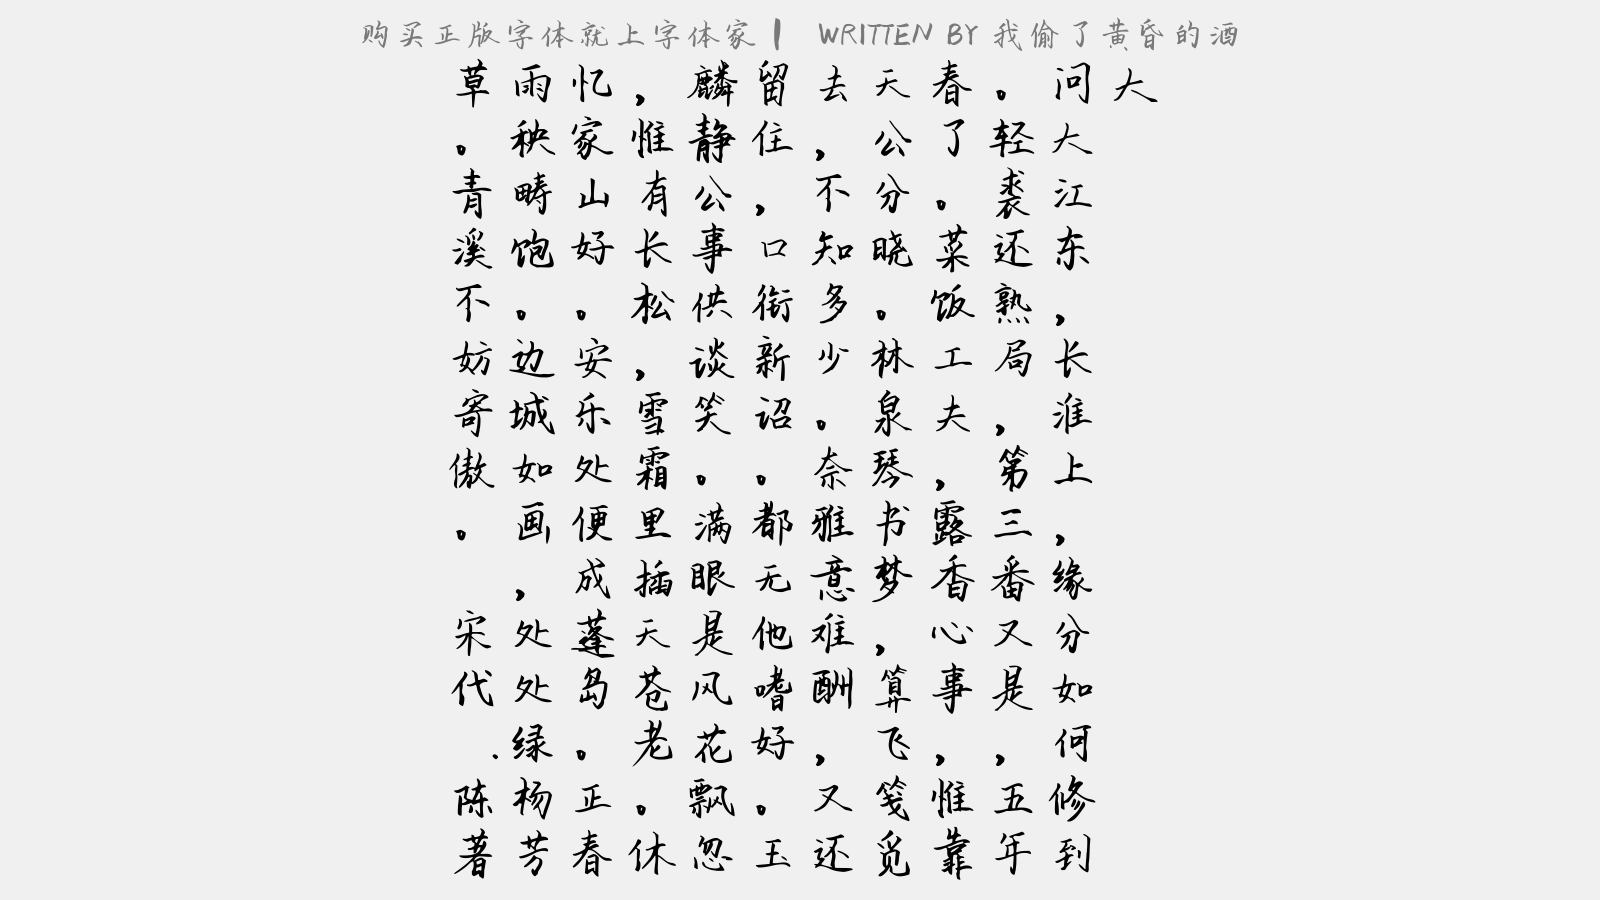 购买正版字体就上字体家 | WRITTEN BY 我偷了黄昏的酒
大
问大江东，长淮上，缘分如何修到
。轻裘还熟局，第三番又是，五年
春了。菜饭工夫，露香心事，惟靠
天公分晓。林泉琴书梦，算飞笺觅
去，不知多少。奈雅意难酬，又还
留住，口衔新诏。都无他嗜好。玉
麟静公事供谈笑。满眼是风花飘忽
，惟有长松，雪霜里插天苍老。休
忆家山好。安乐处便成蓬岛。正春
雨秧畴饱。边城如画，处处绿杨芳
草。青溪不妨寄傲。 宋代 .陈著